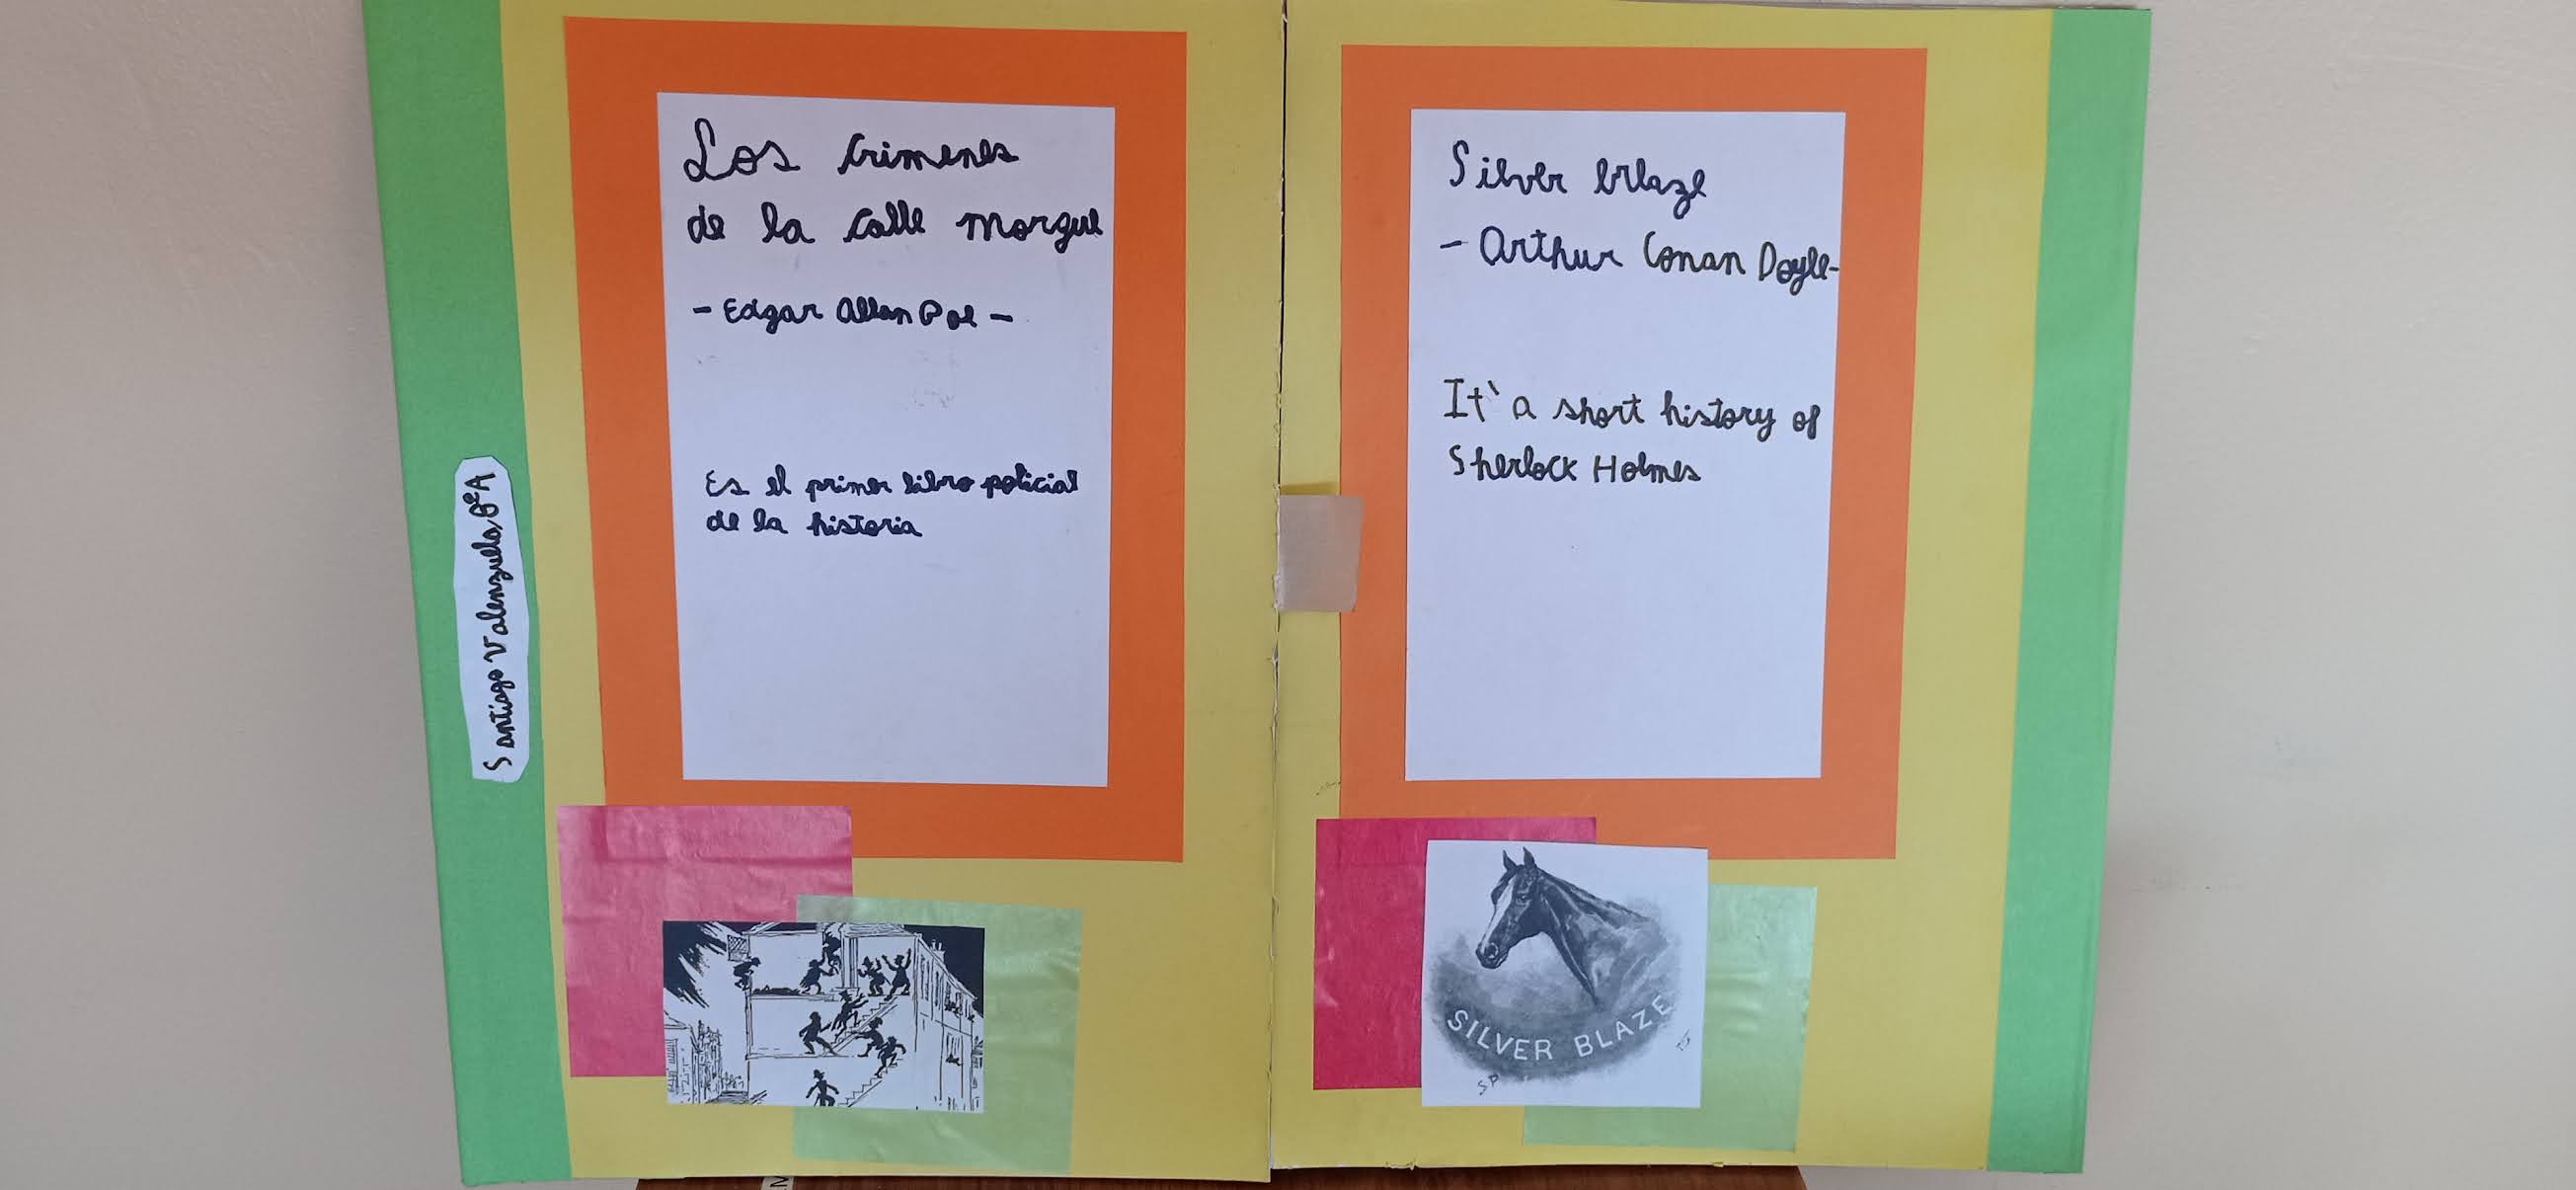 Los crimenes
de la calle morgue
- Edgar Allan Poe -
Es el primer libro policial
de la historia
Santiago Valenzuela 6ºA
Silver blaze
- Arthur Conan Doyle-
It` a short history of
Sherlock Holmes
SILVER BLAZE
SP